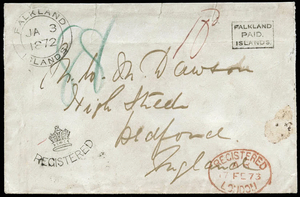 FALKLAND
JA 3
1872
ISLANDS
FALKLAND
PAID.
ISLANDS.
M. Dawson
High Street
Bedford
England
REGISTERED
REGISTERED
FE 73
LONDON